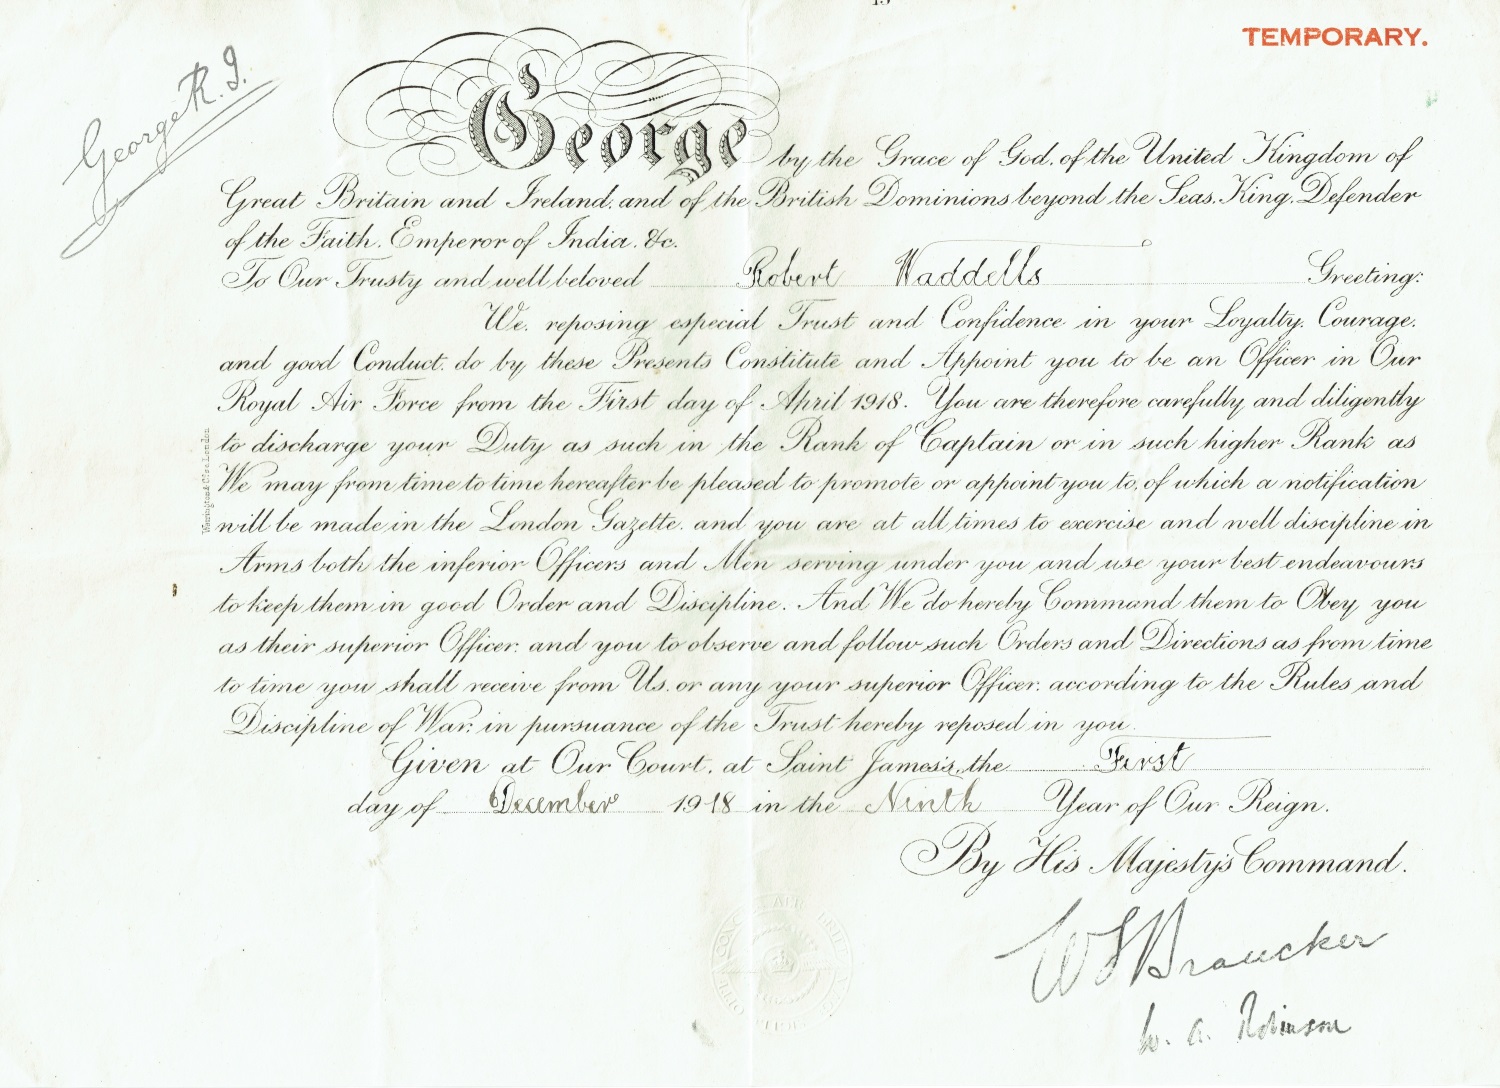 TEMPORARY.
George R.I.
George by the Grace of God, of the United Kingdom of
Great Britain and Ireland, and of the British Dominions beyond the Seas, King, Defender
of the Faith, Emperor of India, &c.
To Our Trusty and well beloved Robert Waddells Greeting:
We, reposing especial Trust and Confidence in your Loyalty, Courage,
and good Conduct, do by these Presents Constitute and Appoint you to be an Officer in Our
Royal Air Force from the First day of April 1918. You are therefore carefully and diligently
to discharge your Duty as such in the Rank of Captain or in such higher Rank as
We may from time to time hereafter be pleased to promote or appoint you to, of which a notification
will be made in the London Gazette, and you are at all times to exercise and well discipline in
Arms both the inferior Officers and Men serving under you and use your best endeavours
to keep them in good Order and Discipline. And We do hereby Command them to Obey you
as their superior Officer, and you to observe and follow such Orders and Directions as from time
to time you shall receive from Us, or any your superior Officer, according to the Rules and
Discipline of War, in pursuance of the Trust hereby reposed in you.
Given at Our Court, at Saint James's, the First
day of December 1918 in the Ninth Year of Our Reign.
By His Majesty's Command.
W. A. Robinson